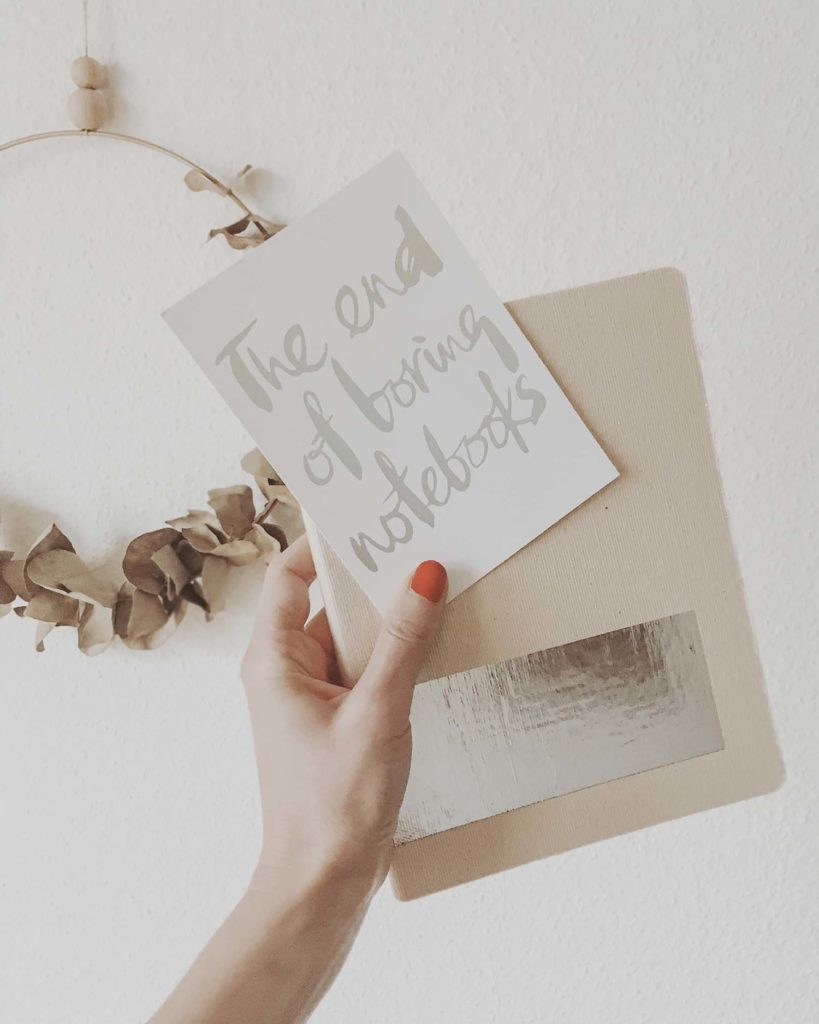 The end
of boring
notebooks